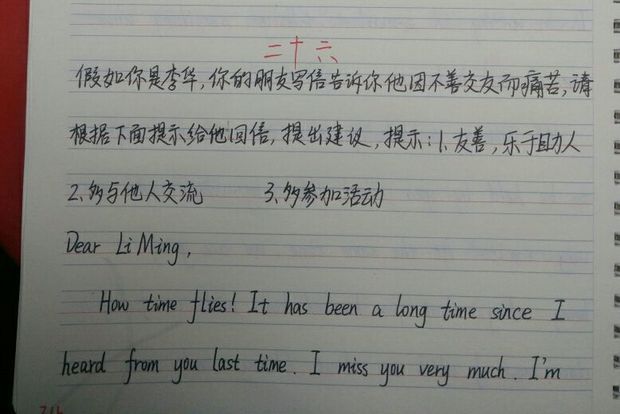 二十六
假如你是李华,你的朋友写信告诉你他因不善交友而痛苦,请
根据下面提示给他回信,提出建议,提示:1.友善,乐于助人
2.多与他人交流 3.多参加活动
Dear Li Ming,
How time flies! It has been a long time since I
heard from you last time. I miss you very much. I'm